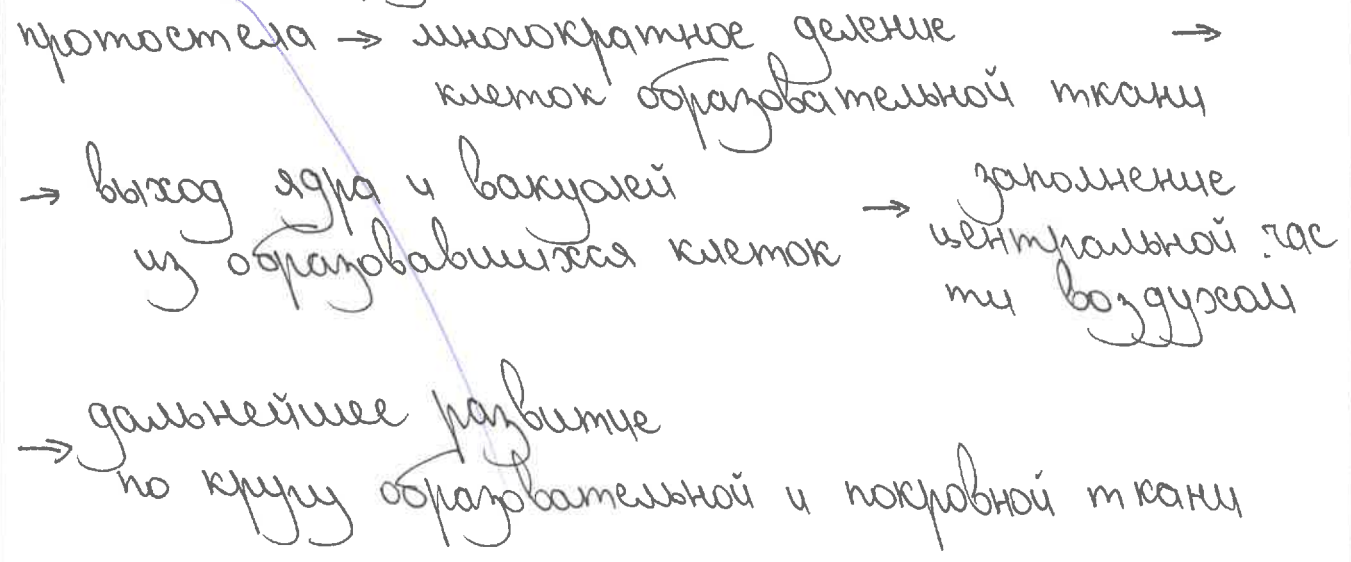 протостела → многократное деление →
клеток образовательной ткани
→ выход ядра и вакуолей → заполнение
из образовавшихся клеток центральной час
ти воздухом
→ дальнейшее развитие
по кругу образовательной и покровной ткани